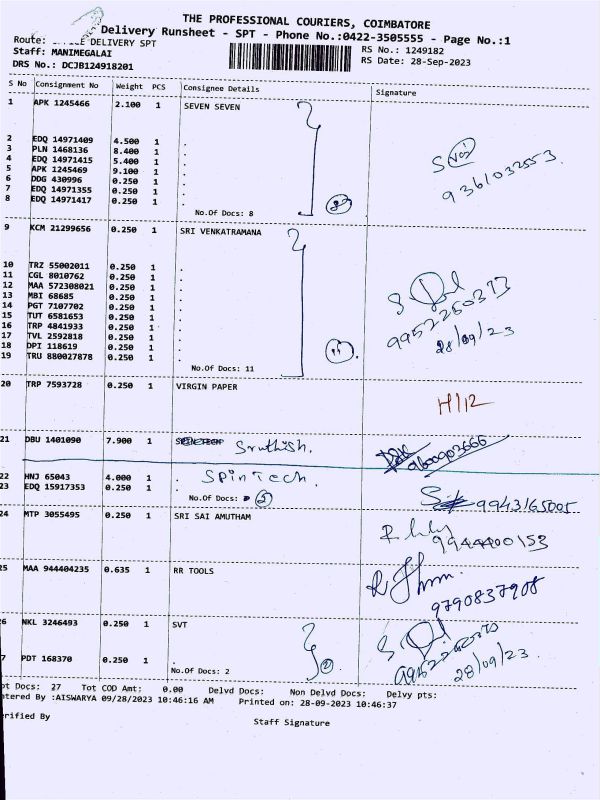 THE PROFESSIONAL COURIERS, COIMBATORE
Delivery Runsheet - SPT - Phone No.:0422-3505555 - Page No.:1
Route: DELIVERY SPT RS No.: 1249182
Staff: MANIMEGALAI RS Date: 28-Sep-2023
DRS No.: DCJB124918201
S No Consignment No Weight PCS Consignee Details Signature
1 APK 1245466 2.100 1 SEVEN SEVEN
2 EDQ 14971409 4.500 1 .
3 PLN 1468136 8.400 1 .
4 EDQ 14971415 5.400 1 .
5 APK 1245469 9.100 1 .
6 DDG 430996 0.250 1 .
7 EDQ 14971355 0.250 1 .
8 EDQ 14971417 0.250 1 .
9361032553
No.Of Docs: 8
9 KCM 21299656 0.250 1 SRI VENKATRAMANA
10 TRZ 55002011 0.250 1 .
11 CGL 8010762 0.250 1 .
12 MAA 572308021 0.250 1 .
13 MBI 68685 0.250 1 .
14 PGT 7107702 0.250 1 .
15 TUT 6581653 0.250 1 .
16 TRP 4841933 0.250 1 .
17 TVL 2592818 0.250 1 .
18 DPI 118619 0.250 1 .
19 TRU 880027878 0.250 1 .
9952260373
28/09/23
No.Of Docs: 11
20 TRP 7593728 0.250 1 VIRGIN PAPER
H/12
21 DBU 1401090 7.900 1 Sruthish.
9600903666
22 HNJ 65043 4.000 1 . Spintech.
23 EDQ 15917353 0.250 1 .
No.Of Docs:
9943165005
24 MTP 3055495 0.250 1 SRI SAI AMUTHAM
9944400153
25 MAA 944404235 0.635 1 RR TOOLS
9790837908
26 NKL 3246493 0.250 1 SVT
27 PDT 168370 0.250 1 .
28/09/23
No.Of Docs: 2 2
ot Docs: 27 Tot COD Amt; 0.00 Delvd Docs: Non Delvd Docs: Delvy pts:
ntered By :AISWARYA 09/28/2023 10:46:16 AM Printed on: 28-09-2023 10:46:37
erified By Staff Signature